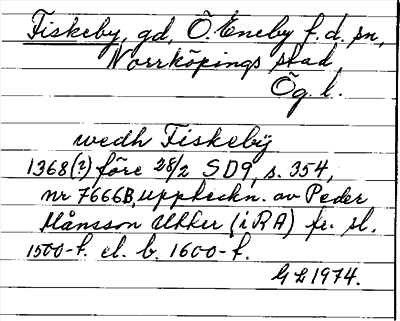 Fiskeby, gd, Ö. Eneby f. d. sn,
Norrköpings stad,
Ög. l.
wedh Fiskebÿ
1368(?) före 28/2 SD9, s. 354,
nr 7666B, uppteckn. av Peder
Månsson Utter (i RA) fr. sl.
1500-t. el. b. 1600-t.
G L 1974.